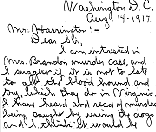 Washington D.C.
Aug 14-1917.
Mrs. Harrington:-
Dear Sir,
I am interested in
Mrs. Brandon murder case, and
I suggest if it is not to late
to call the blood hound and
try, which they do in Virginia.
I have heard and read of murders
being caught by using the dogs
and I think it would be